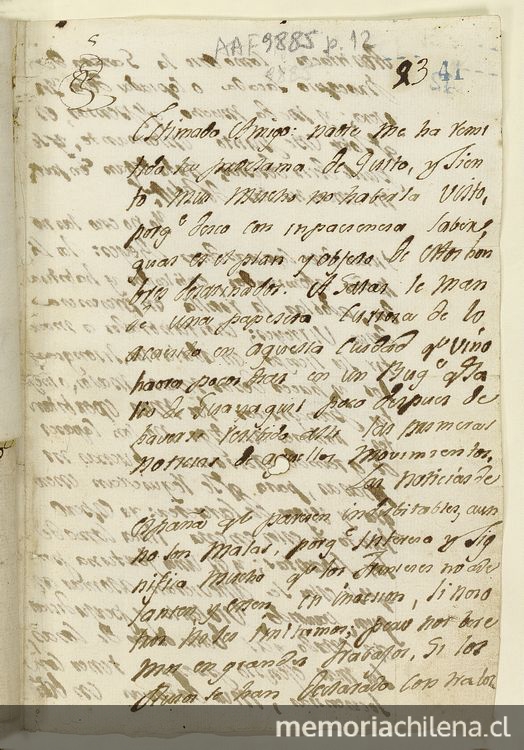 AAE9885 p. 12
23 41
Estimado Amigo: nadie me ha remi
tido la proclama de Quito, y sien
to mui mucho no haberla visto,
porq.e deseo con inpaciencia saber
qual es el plan y objeto de estos hom
bres
A Salas le man
de una papeleta curiosa de lo
acaecido en aquella Ciudad q.e vino
haora pocos dias en un Buq.e q.e sa
lio de Guayaquil poco despues de
haverse recibido alli las primeras
noticias de aquellos movimientos.
Las noticias de
España q.e parecen indubitables, aun
no son malas, porq.e interesa y sig
nifica mucho q.e los Franceses no ade
lanten y esten en inaccion, si noso
tros no les
pero nos vere
mos en grandes trabajos, si los
se han declarado con
memoriachilena.cl